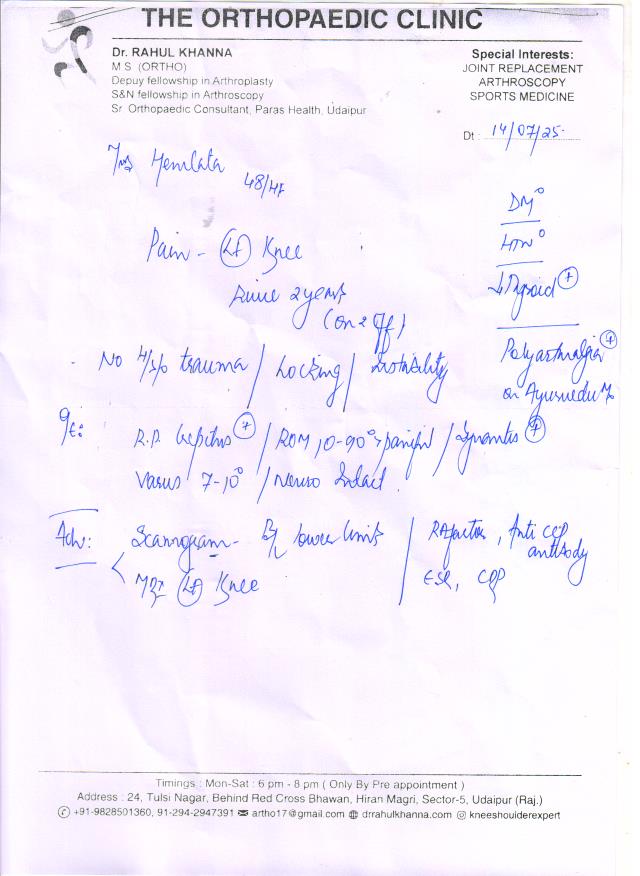 THE ORTHOPAEDIC CLINIC
Dr. RAHUL KHANNA
M S (ORTHO)
Depuy fellowship in Arthroplasty
S&N fellowship in Arthroscopy
Sr. Orthopaedic Consultant, Paras Health, Udaipur
Special Interests:
JOINT REPLACEMENT
ARTHROSCOPY
SPORTS MEDICINE
Dt : 14/07/25
Hemlata
48/
DM°
HTN°
Pain - Lt Knee
since 2 years
(on & off)
Thyroid +
No H/o trauma / Locking / Instability
Polyarthralgia +
on Ayurvedic
R.P. Crepitus + / ROM 10-90° painful / Synovitis +
Varus 7-10° / Neuro Intact
Adv: Scannogram - B/L lower limb
MRI Lt Knee
RA factor, Anti CCP
antibody
ESR, CRP
Timings : Mon-Sat : 6 pm - 8 pm ( Only By Pre appointment )
Address : 24, Tulsi Nagar, Behind Red Cross Bhawan, Hiran Magri, Sector-5, Udaipur (Raj.)
+91-9828501360, 91-294-2947391 artho17@gmail.com drrahulkhanna.com kneeshoulderexpert